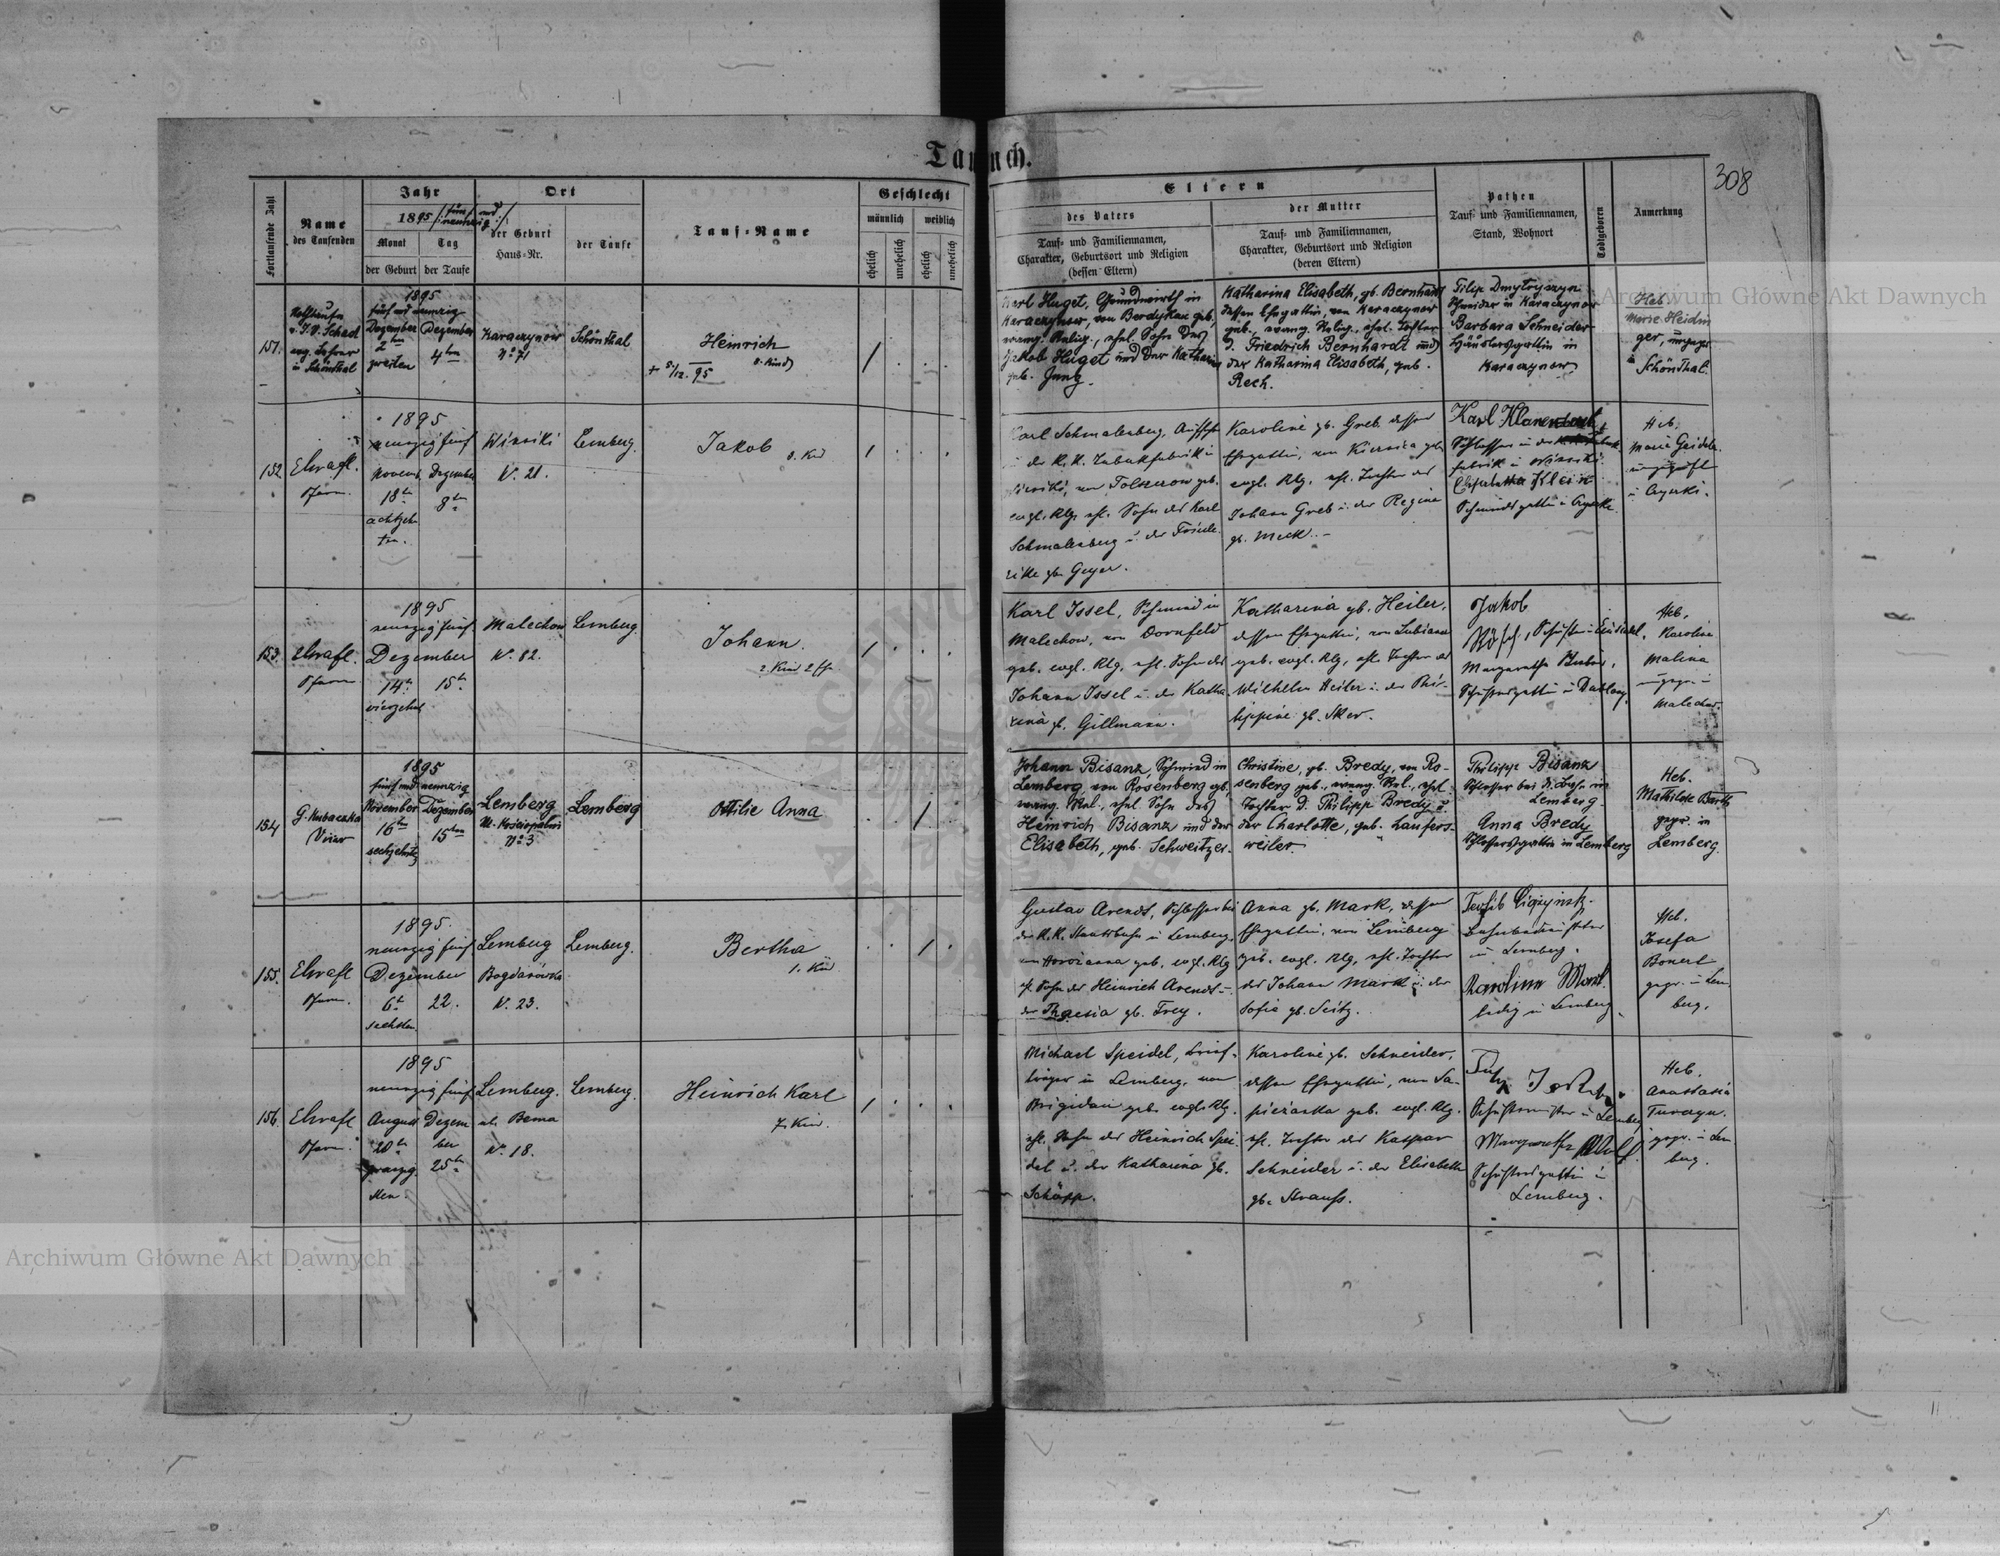 Taufbuch.
308
Fortlaufende Zahl
Name
des Taufenden
Jahr
1895 /: fünf und
neunzig :/
Monat
Tag
der Geburt
der Taufe
Ort
der Geburt
Haus-Nr.
der Taufe
Tauf-Name
Geschlecht
männlich
weiblich
ehelich
unehelich
ehelich
unehelich
Eltern
des Vaters
Tauf- und Familiennamen,
Charakter, Geburtsort und Religion
(dessen Eltern)
der Mutter
Tauf- und Familiennamen,
Charakter, Geburtsort und Religion
(deren Eltern)
Pathen
Tauf- und Familiennamen,
Stand, Wohnort
Todtgeboren
Anmerkung
151.
Nothtaufe
v. J. G. Schad
evg. Lehrer
in Schönthal
1895
fünf und neunzig
Dezember
2ten
zweiten
Dezember
4ten
Karaczynów
No 71
Schönthal
Heinrich
8. Kind
+ 5/12. 95
Karl Huget, Grundwirth in
Karaczynow, von Berdykau geb.,
evang. Relig., ehel. Sohn des
Jakob Huget und der Katharina
geb. Jung.
Katharina Elisabeth, gb. Bernhardt
dessen Ehegattin, von Karaczynow
geb., evang. Relig., ehel. Tochter
d. Friedrich Bernhardt und
der Katharina Elisabeth, geb.
Rech.
Filip Dmytryszyn
Schneider in Karaczynow
Barbara Schneider
Häuslersgattin in
Karaczynow
Heb.
Marie Heidin
ger, ungepr.
in Schönthal.
152.
Ehrafl.
Pfarrer.
1895
neunzig fünf
Novemb.
18ten
achtzehn
ten.
Dezember
8ten
Winniki
No. 21.
Lemberg.
Jakob
8. Kind
Karl Schmalenberg, Aufseher
in der K. K. Tabakfabrik in
Winniki, von Folkerow geb.
evgl. Rlg. ehl. Sohn des Karl
Schmalenberg u. der Friede-
rike gb. Geyer.
Karoline gb. Greb dessen
Ehegattin, von Kiernica geb.
evgl. Rlg. ehl. Tochter des
Johann Greb u. der Regine
gb. Meck.
Karl
Schlosser in der
fabrik in Winniki.
Elisabetha Klein
Schmiedsgattin in
Heb.
Marie
ungeprüft
in
153.
Ehrafl.
Pfarrer
1895
neunzig fünf
Dezember
14ten
vierzehnt
15ten
Malechow
No. 82.
Lemberg.
Johann.
2. Kind 2 Eh.
Karl Issel, Schmied in
Malechow, von Dornfeld
geb. evgl. Rlg. ehl. Sohn des
Johann Issel u. der Katha-
rina gb. Gillmann.
Katharina gb. Heiler,
dessen Ehegattin, von Lubiana
geb. evgl. Rlg. ehl. Tochter des
Wilhelm Heiler u. der Phi-
lippine gb. Sker.
Jakob
Margaretha Huber,
Schustersgattin in
Heb.
Karoline
Malina
ungepr. in
Malechow.
154
G. Kubaczka
Vikar
1895
fünf und neunzig
November
16ten
sechzehnt
Dezember
15ten
Lemberg
No 3
Lemberg
Ottilie Anna
Johann Bisanz, Schmied in
Lemberg, von Rosenberg geb.
evang. Rel., ehel. Sohn des
Heinrich Bisanz und der
Elisabeth, geb. Schweitzer.
Christine, gb. Bredy, von Ro-
senberg geb., evang. Rel., ehel.
Tochter d. Philipp Bredy u
der Charlotte, geb. Laufers-
weiler.
Philipp Bisanz
Schlosser bei d. Bahn in
Lemberg
Anna Bredy
Schlossersgattin in Lemberg
Heb.
Mathilde Barth
gepr. in
Lemberg.
155.
Ehrafl
Pfarrer.
1895.
neunzig fünf
Dezember
6ten
sechsten.
22.
Lemberg
Bogdanówka
No. 23.
Lemberg.
Bertha
1. Kind
Gustav Arendt, Schlosser bei
der K. K. Staatsbahn in Lemberg,
geb. evgl. Rlg
ehl. Sohn des Heinrich Arendt u.
der Theresia gb. Frey.
Anna gb. Mark, dessen
Ehegattin, von Lemberg
geb. evgl. Rlg. ehl. Tochter
des Johann Mark u. der
Sofie gb. Seitz.
in Lemberg.
Karoline Mark
ledig in Lemberg
Heb.
Josefa
Bonert
gepr. in Lem
berg.
156.
Ehrafl
Pfarrer.
1895
neunzig fünf
August
20ten
zwanzig
sten
Dezem
ber
25ten
Lemberg.
ul. Bema
No. 18.
Lemberg.
Heinrich Karl
7. Kind.
Michael Speidel, Brief-
träger in Lemberg, von
Brigidau geb. evgl. Rlg.
ehl. Sohn des Heinrich Spei
del u. der Katharina gb.
Schöpp.
Karoline gb. Schneider,
dessen Ehegattin, von Sa-
pieżanka geb. evgl. Rlg.
ehl. Tochter des Kaspar
Schneider u. der Elisabeth
gb. Strauss.
Schuhmacher in Lemberg
Margaretha Wolf
Schustersgattin in
Lemberg.
Heb.
Anastasia
gepr. in Lem
berg.
Archiwum Główne Akt Dawnych
Archiwum Główne Akt Dawnych